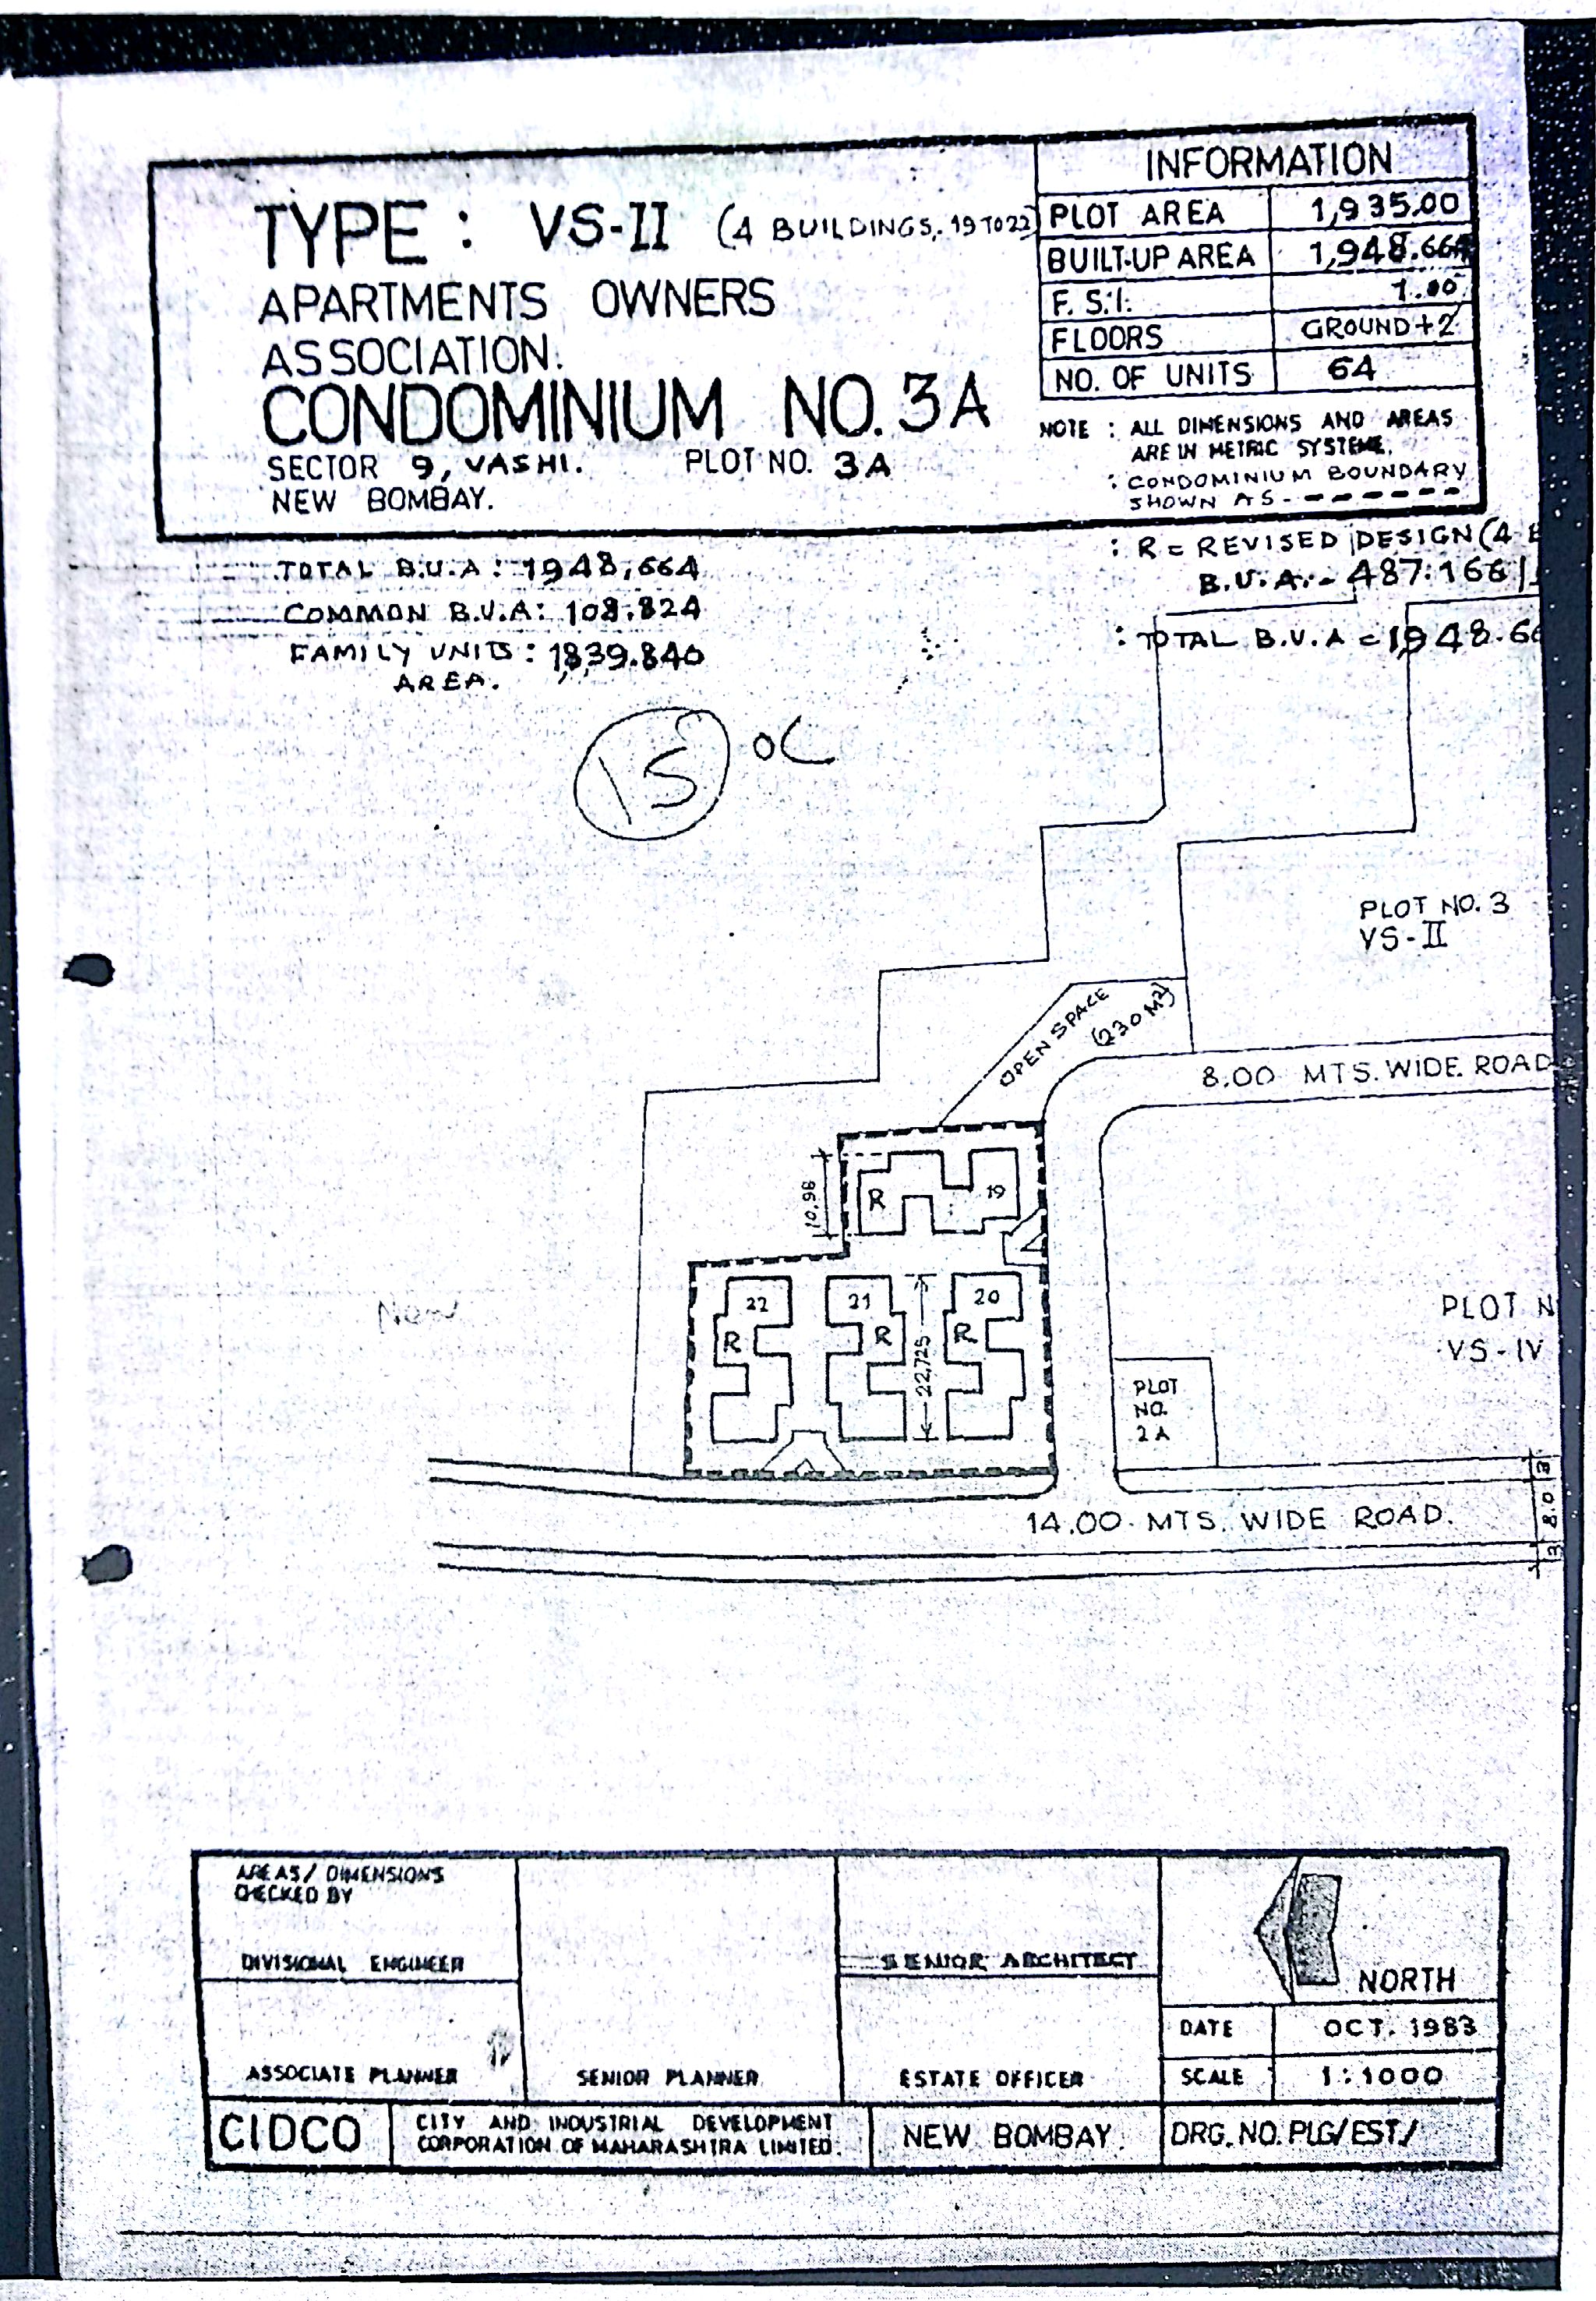 INFORMATION
TYPE : VS-II (4 BUILDINGS, 19 TO 22)
APARTMENTS OWNERS
ASSOCIATION.
CONDOMINIUM NO. 3A
SECTOR 9, VASHI. PLOT NO. 3A
NEW BOMBAY.
PLOT AREA 1,935.00
BUILT-UP AREA 1,948.664
F.S.I. 1.00
FLOORS GROUND+2
NO. OF UNITS 64
NOTE : ALL DIMENSIONS AND AREAS
ARE IN METRIC SYSTEME.
: CONDOMINIUM BOUNDARY
SHOWN AS - - - - - - -
: R = REVISED DESIGN (4
B.U.A. - 487.166
: TOTAL B.U.A = 1948.66
TOTAL B.U.A : 1948,664
COMMON B.U.A : 108.824
FAMILY UNITS : 1,839.840
AREA.
15 OC
PLOT NO. 3
VS-II
OPEN SPACE
(230 M2)
8.00 MTS. WIDE ROAD
10.98
R 19
22 21 20
R R R
22.725
New
PLOT N
VS-IV
PLOT
NO.
2A
14.00 MTS. WIDE ROAD.
3 8.0 3
AREAS/ DIMENSIONS
CHECKED BY
DIVISIONAL ENGINEER
SENIOR ARCHITECT
NORTH
ASSOCIATE PLANNER
SENIOR PLANNER
ESTATE OFFICER
DATE OCT. 1983
SCALE 1:1000
CIDCO
CITY AND INDUSTRIAL DEVELOPMENT
CORPORATION OF MAHARASHTRA LIMITED.
NEW BOMBAY
DRG. NO. PLG/EST/